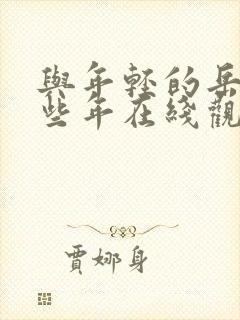 與年轻的岳
些年在綫觀
賈娜身